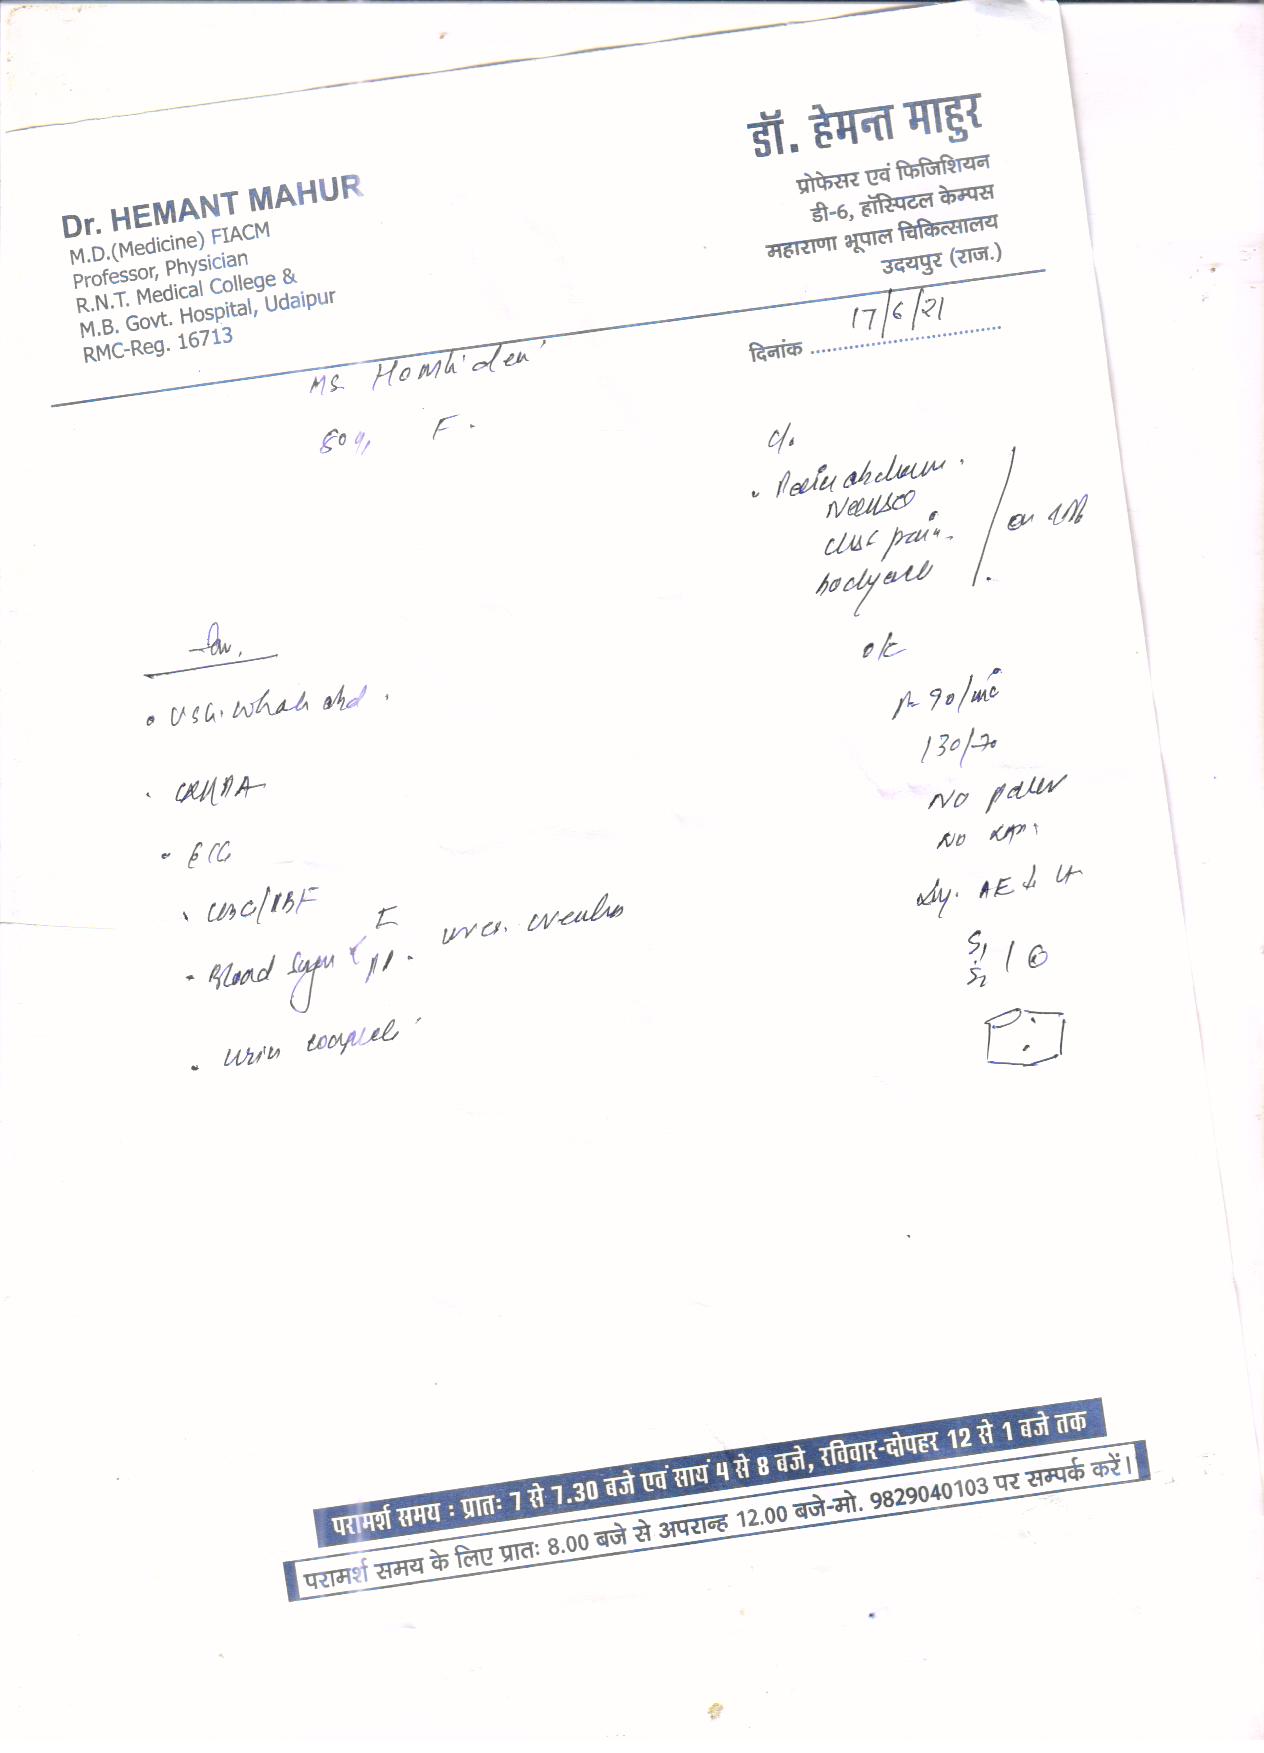 डॉ. हेमन्त माहुर
प्रोफेसर एवं फिजिशियन
डी-6, हॉस्पिटल केम्पस
महाराणा भूपाल चिकित्सालय
उदयपुर (राज.)
Dr. HEMANT MAHUR
M.D.(Medicine) FIACM
Professor, Physician
R.N.T. Medical College &
M.B. Govt. Hospital, Udaipur
RMC-Reg. 16713
दिनांक 17/6/21
F.
c/o
Pain abdomen.
Nausea
chest pain.
bodyache
o/E
90/min
130/70
No pallor
No
AE
S1
S2
Inv.
• USG. Whole abd.
• ECG
CBC/
Blood Sugar F
PP. urea. creatinine
• Urine complete
परामर्श समय : प्रातः 7 से 7.30 बजे एवं सायं 4 से 8 बजे, रविवार-दोपहर 12 से 1 बजे तक
परामर्श समय के लिए प्रातः 8.00 बजे से अपरान्ह 12.00 बजे-मो. 9829040103 पर सम्पर्क करें।